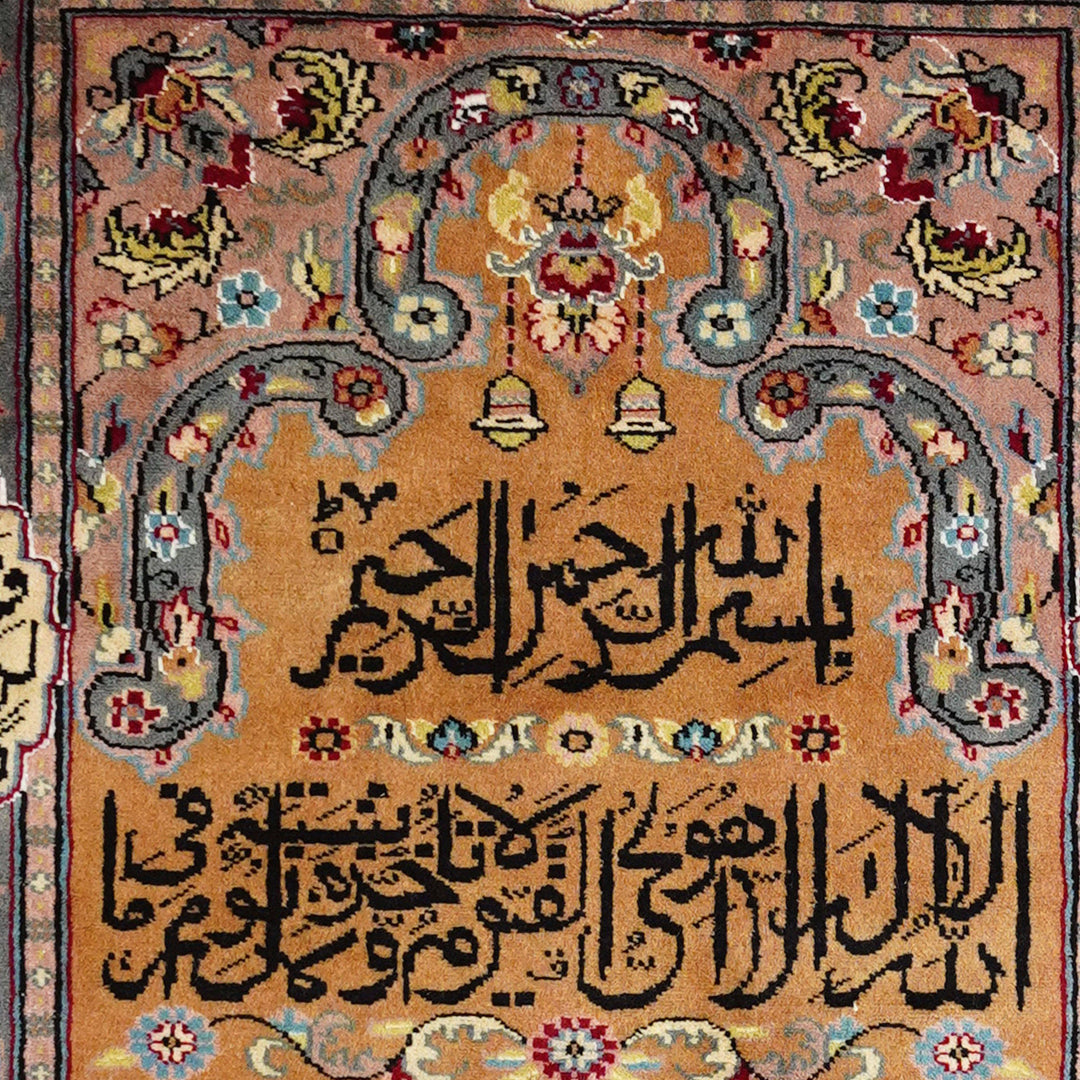 بسم الله الرحمن الرحيم
الله لا إله إلا هو الحي القيوم لا تأخذه سنة ولا نوم له ما في